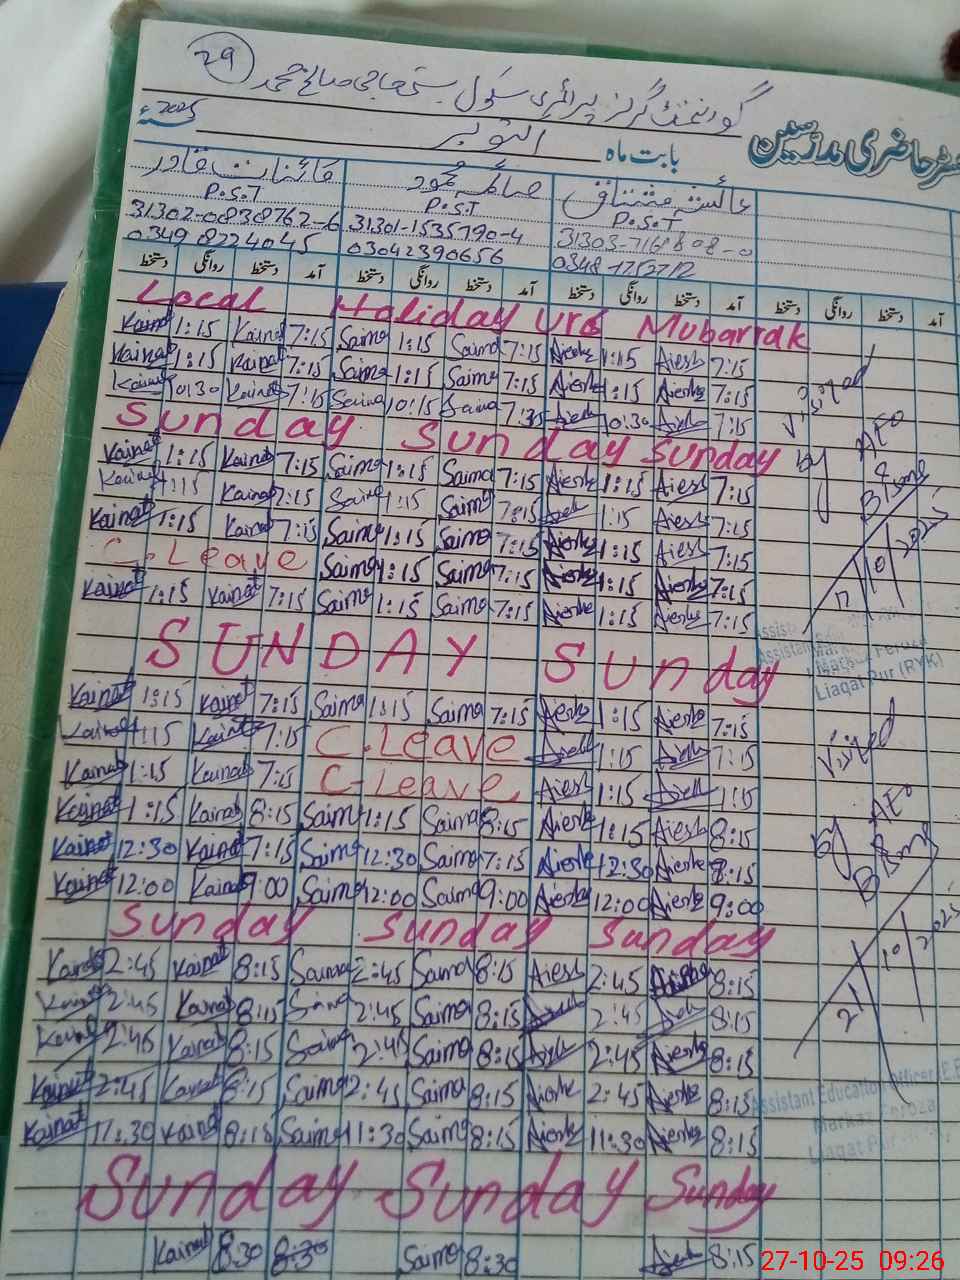 29
گورنمنٹ گرلز پرائمری سکول بستی حاجی صالح محمد
حاضری مدرسین
بابت ماہ اکتوبر 2025ء
عائشہ مشتاق صائمہ محمود کائنات قادر
P.S.T P.S.T P.S.T
31302-0838762-6 31301-1535790-4 31303-7161808-0
0349 8224045 03042390656 0348 1752712
آمد دستخط روانگی دستخط آمد دستخط روانگی دستخط آمد دستخط روانگی دستخط آمد دستخط روانگی دستخط
Local Holiday Urs Mubarrak
Kainat 1:15 Kainat 7:15 Saima 1:15 Saima 7:15 Aiesha 1:15 Aiesh 7:15
Kainat 1:15 Kainat 7:15 Saima 1:15 Saima 7:15 Aiesha 1:15 Aiesh 7:15
Kainat 10:30 Kainat 7:15 Saima 10:15 Saima 7:35 Aiesh 10:30 Aiesh 7:15
Sunday Sunday Sunday
Kainat 1:15 Kainat 7:15 Saima 1:15 Saima 7:15 Aiesha 1:15 Aiesh 7:15
Kainat 1:15 Kainat 7:15 Saima 1:15 Saima 7:15 Aiesh 1:15 Aiesh 7:15
Kainat 1:15 Kainat 7:15 Saima 1:15 Saima 7:15 Aiesha 1:15 Aiesh 7:15
C-Leave Saima 1:15 Saima 7:15 Aiesha 1:15 Aiesha 7:15
Kainat 1:15 Kainat 7:15 Saima 1:15 Saima 7:15 Aiesha 1:15 Aiesha 7:15
SUNDAY Sunday
Kainat 1:15 Kainat 7:15 Saima 1:15 Saima 7:15 Aiesha 1:15 Aiesha 7:15
Kainat 1:15 Kainat 7:15 C.Leave Aiesh 1:15 Aiesh 7:15
Kainat 1:15 Kainat 7:15 C-Leave Aiesh 1:15 Aiesh 1:15
Kainat 1:15 Kainat 8:15 Saima 1:15 Saima 8:15 Aiesha 1:15 Aiesh 8:15
Kainat 12:30 Kainat 7:15 Saima 12:30 Saima 7:15 Aiesha 12:30 Aiesha 8:15
Kainat 12:00 Kainat 9:00 Saima 12:00 Saima 9:00 Aiesha 12:00 Aiesha 9:00
Sunday Sunday Sunday
Kainat 2:45 Kainat 8:15 Saima 2:45 Saima 8:15 Aiesh 2:45 Aiesha 8:15
Kainat 2:45 Kainat 8:15 Saima 2:45 Saima 8:15 Aiesh 2:45 Aiesh 8:15
Kainat 2:45 Kainat 8:15 Saima 2:45 Saima 8:15 Aiesh 2:45 Aiesha 8:15
Kainat 2:45 Kainat 8:15 Saima 2:45 Saima 8:15 Aiesha 2:45 Aiesha 8:15
Kainat 11:30 Kainat 8:15 Saima 11:30 Saima 8:15 Aiesha 11:30 Aiesha 8:15
Sunday Sunday Sunday
Kainat 8:30 8:30 Saima 8:30 Aiesh 8:15
Visited
by AEO
17/10/2025
Liaqat Pur (RYK)
Visited
by AEO
21/10/2025
Assistant Education Officer
27-10-25 09:26